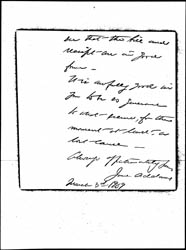 see that the bill and
receipt are in good
form —
It is awfully good in
you to be so generous
to what seems, for the
moment at least - a
lost cause —
Always affectionately yrs
Jane Addams
March 5"